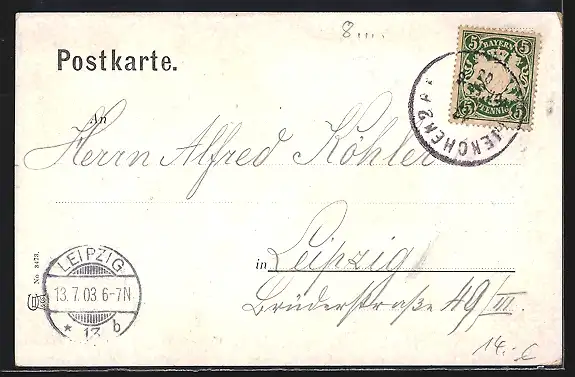 8
Postkarte.
5 BAYERN 5
5 PFENNIG 5
An
Herrn Alfred Köhler
in Leipzig
Brüderstraße 49/III.
LEIPZIG
13.7.03 6-7N.
* 13 b
No 8473.
14.-